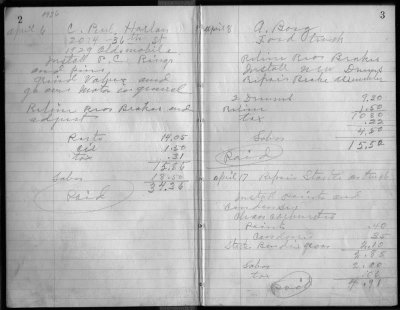 2
1936
April 6 C. Paul Harlan
2014 - 36th
1929 Oldsmobile
Install S.C. Rings
and pins,
Grind Valves and
go over motor in general
Reline Rear Brakes and
adjust
Parts 14.05
Oil 1.50
tax .31
15.86
Labor 18.50
34.36
Paid
3
April 8 A. Borg
Ford truck
Reline Rear Brakes
Install new Drums
Repair Brake
2 Drums 9.30
Reline 1.50
10.80
tax .22
Labor 4.50
15.52
Paid
April 17 Repair truck
Install points and
Condenser
Points .40
Condenser .35
2.10
2.85
Labor 2.00
tax .06
4.91
Paid